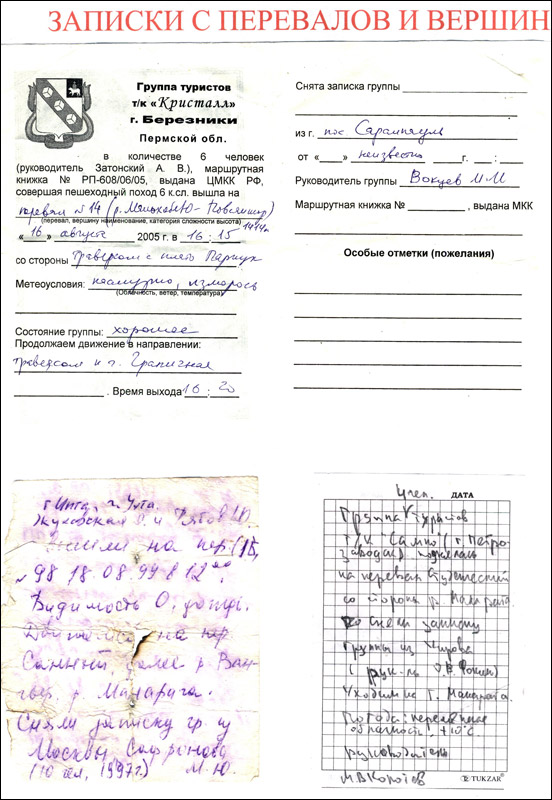 ЗАПИСКИ С ПЕРЕВАЛОВ И ВЕРШИН
Группа туристов
т/к «Кристалл»
г. Березники
Пермской обл.
в количестве 6 человек
(руководитель Затонский А. В.), маршрутная
книжка № РП-608/06/05, выдана ЦМКК РФ,
совершая пешеходный поход 6 к.сл. вышла на
перевал №14 (р.
(перевал, вершину наименование, категория сложности высота)
«16» августа 2005 г. в 16 : 15
со стороны траверсом с плато Паргук
Метеоусловия: пасмурно, изморось
(Облачность, ветер, температура)
Состояние группы: хорошее
Продолжаем движение в направлении:
траверсом к г.
. Время выхода 16 : 20
Снята записка группы
из г. пос Саранпауль
от «___» неизвестно г. :
Руководитель группы Вокуев М М
Маршрутная книжка № , выдана МКК
Особые отметки (пожелания)
г Инта, г. Ухта.
Жуковская и
на пер (1Б,
18.08.99 в 12 00.
Видимость 0, дождь.
на пер
далее р.
р. Манарага.
Сняли записку гр. из
Москвы Сафронова
(10 чел, 1997г.) М.Ю.
Член. ДАТА
Группа туристов
т/к "Сампо" (г. Петро-
заводск) поднялась
на перевал Студенческий
со стороны р. Манарага.
Сняли записку
группы из Кирова
(рук-ль В. Фокин)
Уходим на г. Манарага.
Погода: переменная
облачность, +10°C
руководитель
М.В Коротов
TUKZAR